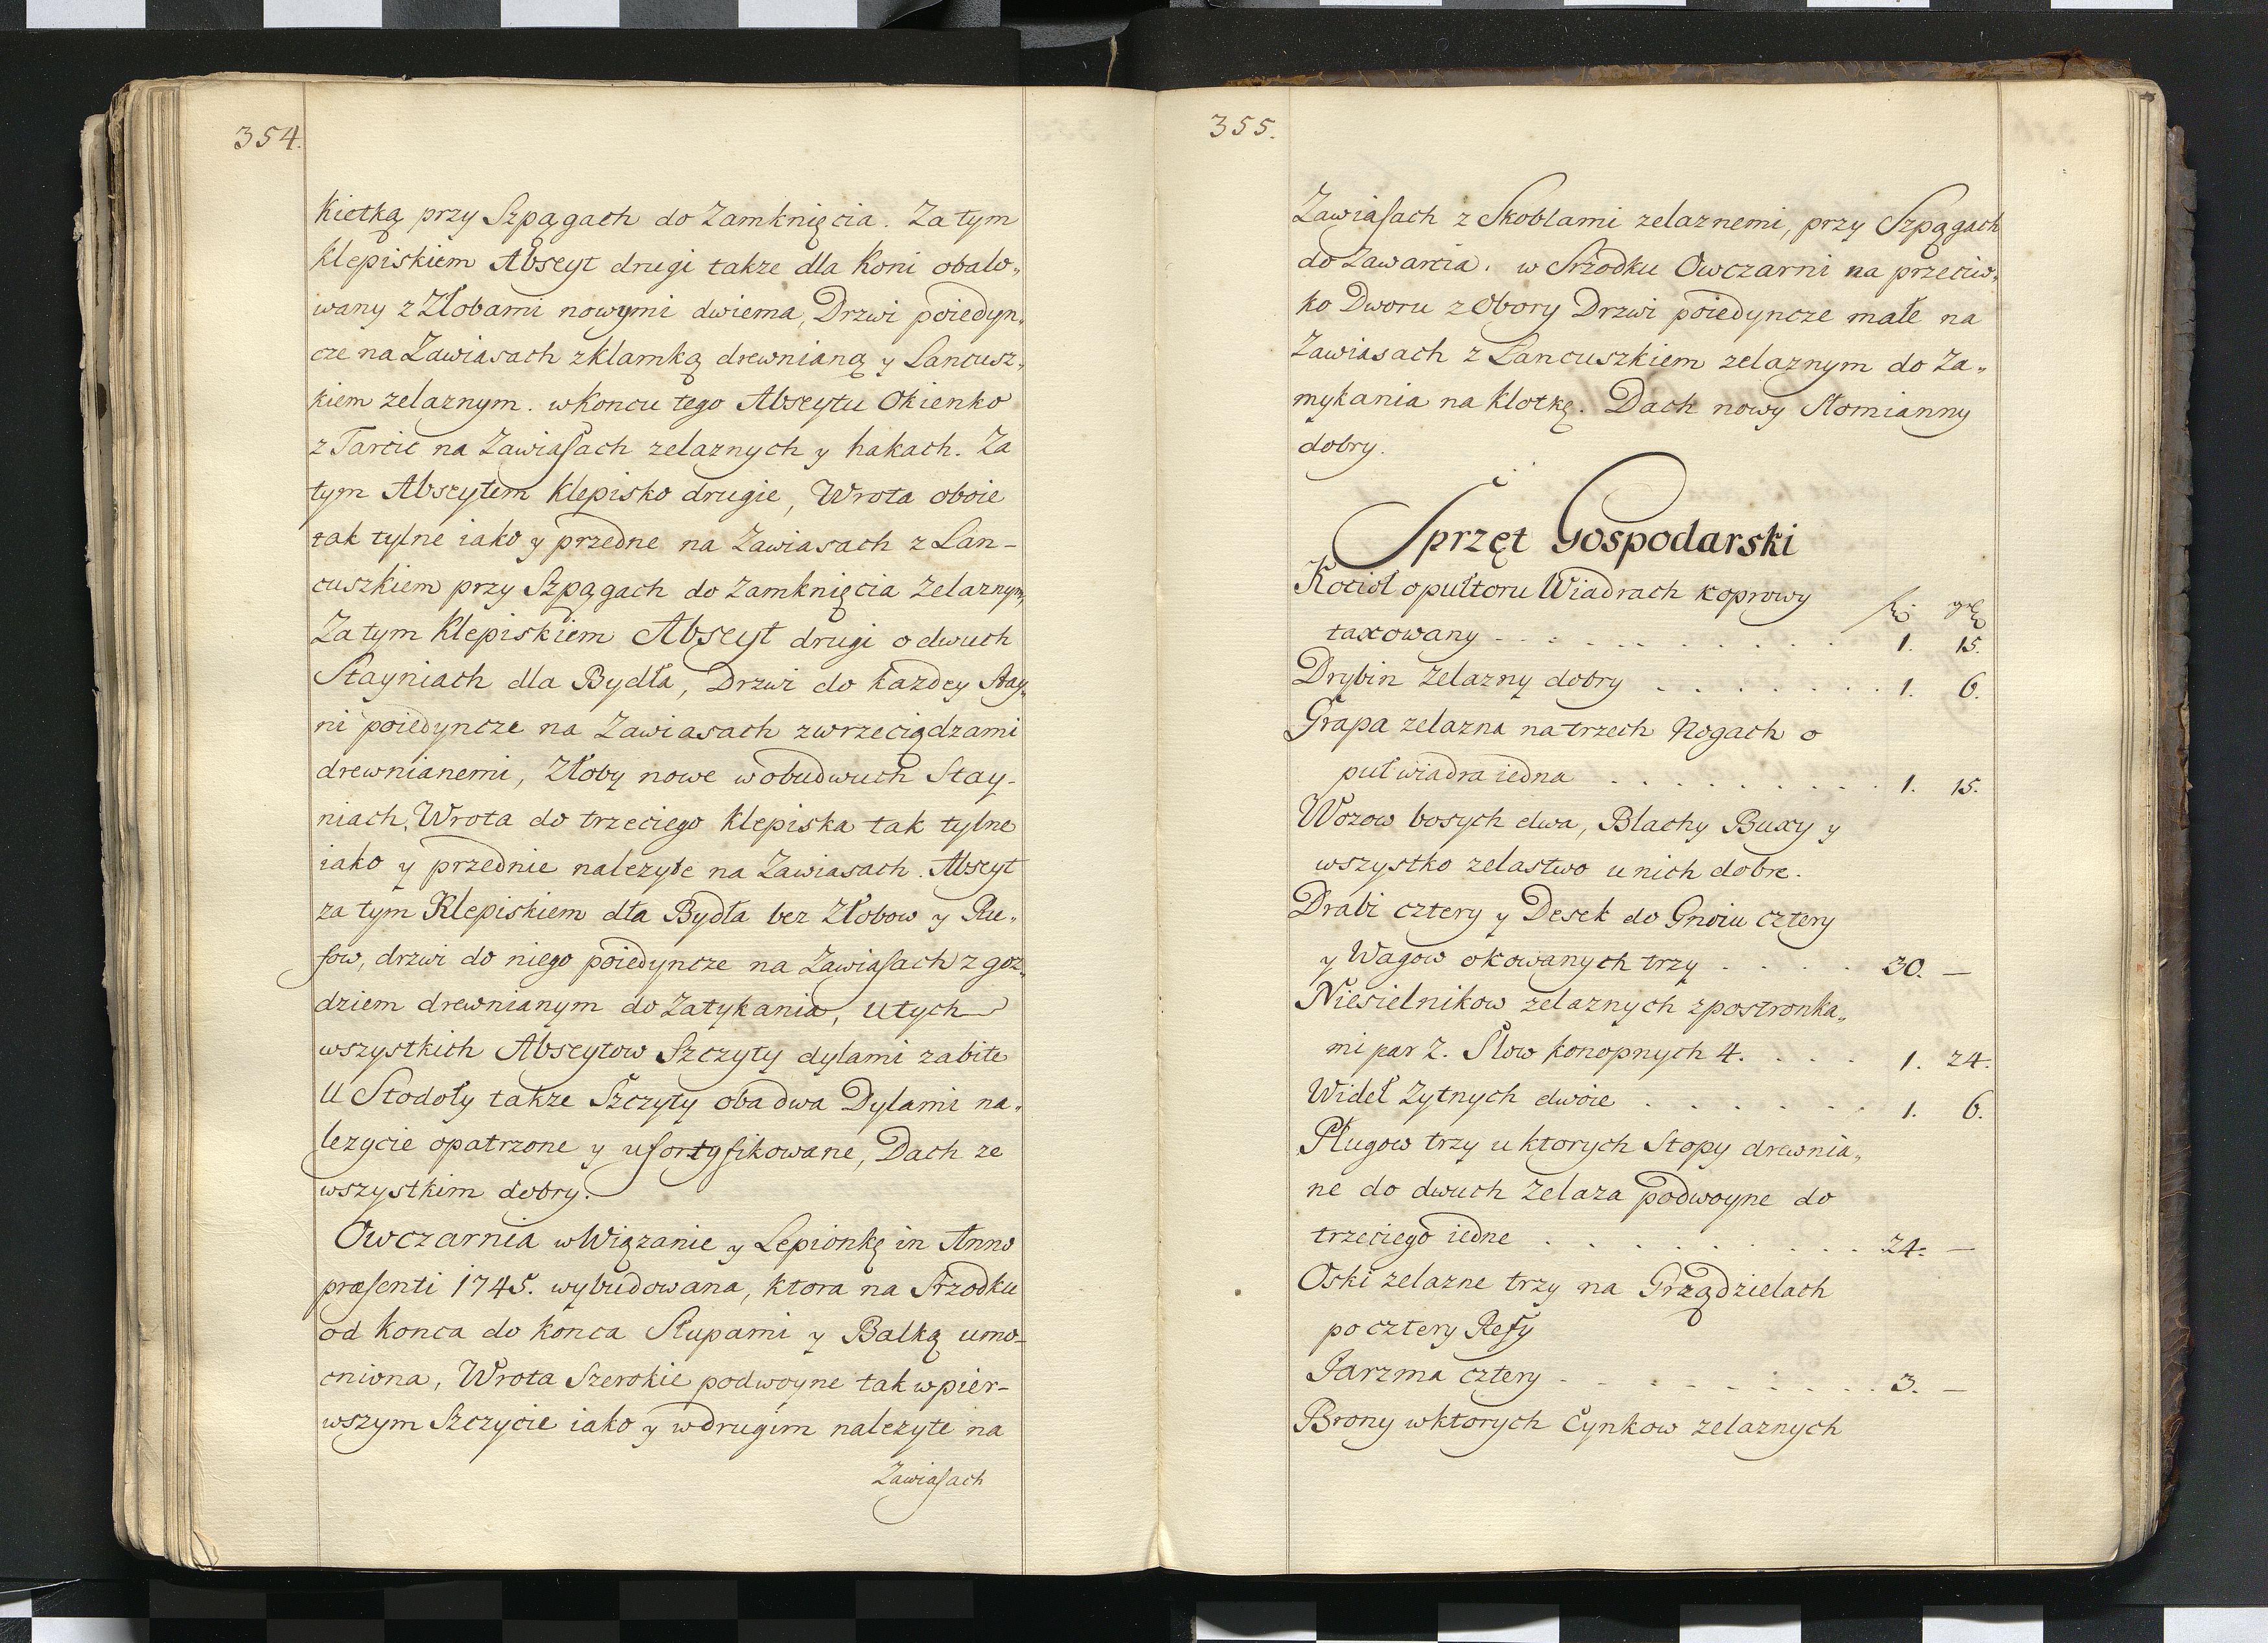 354.
kietką przy Szpągach do Zamknięcia. Za tym
klepiskiem Abszyt drugi takze dla Koni obalo„
wany z Złobami nowymi dwiema, Drzwi poiedyn„
cze na Zawiasach z klamką drewnianą y Lancusz„
kiem zelaznym. w Koncu tego Abszytu Okienko
z Tarcic na Zawiasach zelaznych y hakach. Za
tym Abszytem Klepisko drugie, Wrota oboie
tak tylne iako y przedne na Zawiasach z Lan-
cuszkiem przy Szpągach do Zamknięcia Zelaznym,
Za tym Klepiskiem Abszyt drugi o dwuch
Stayniach dla Bydła, Drzwi do kazdey Stay„
ni poiedyncze na Zawiasach z wrzeciądzami
drewnianemi, Złoby nowe w obudwuch Stay-
niach, Wrota do trzeciego Klepiska tak tylne
iako y przednie nalezyte na Zawiasach. Abszyt
za tym Klepiskiem dla Bydła bez Złobow y Ru„
fow, drzwi do niego poiedyncze na Zawiasach z goz„
dziem drewnianym do Zatykania, U tych
wszystkich Abszytow Szczyty dylami zabite
U Stodoły takze Szczyty oba dwa Dylami na„
lezycie opatrzone y ufortyfikowane, Dach ze
wszystkim dobry.
Owczarnia w Wiązanie y Lepionkę in Anno
præsenti 1745. wybudowana, ktora na Srzodku
od Konca do Konca Słupami y Balką umo-
cniona, Wrota Szerokie podwoyne tak w pier-
wszym Szczycie iako y w drugim nalezyte na
Zawiasach
355.
Zawiasach z Skoblami zelaznemi, przy Szpągach
do Zawarcia. w Srzodku Owczarni na przeciw„
ko Dworu z Obory Drzwi poiedyncze małe na
Zawiasach z Łancuszkiem zelaznym do Za„
mykania na Klotkę. Dach nowy Słomianny
dobry.
Sprzęt Gospodarski
Kocioł o pułtoru Wiadrach koprowy
taxowany 1. 15.
Drybin Zelazny dobry 1. 6.
Grapa zelazna na trzech Nogach o
puł wiadra iedna 1. 15.
Wozow bosych dwa, Blachy Buxy y
wszystko zelastwo u nich dobre.
Drabi cztery y Desek do Gnoiu cztery
y Wagow okowanych trzy 30. —
Niesielnikow zelaznych z postronka„
mi par 2. Slow konopnych 4. 1. 24.
Wideł Zytnych dwoie 1. 6.
Pługow trzy u ktorych Stopy drewnia„
ne do dwuch Zelaza podwoyne do
trzeciego iedne 24. —
Oski zelazne trzy na Grządzielach
po cztery Refy
Jarzma cztery 3. —
Brony w ktorych Cynkow zelaznych